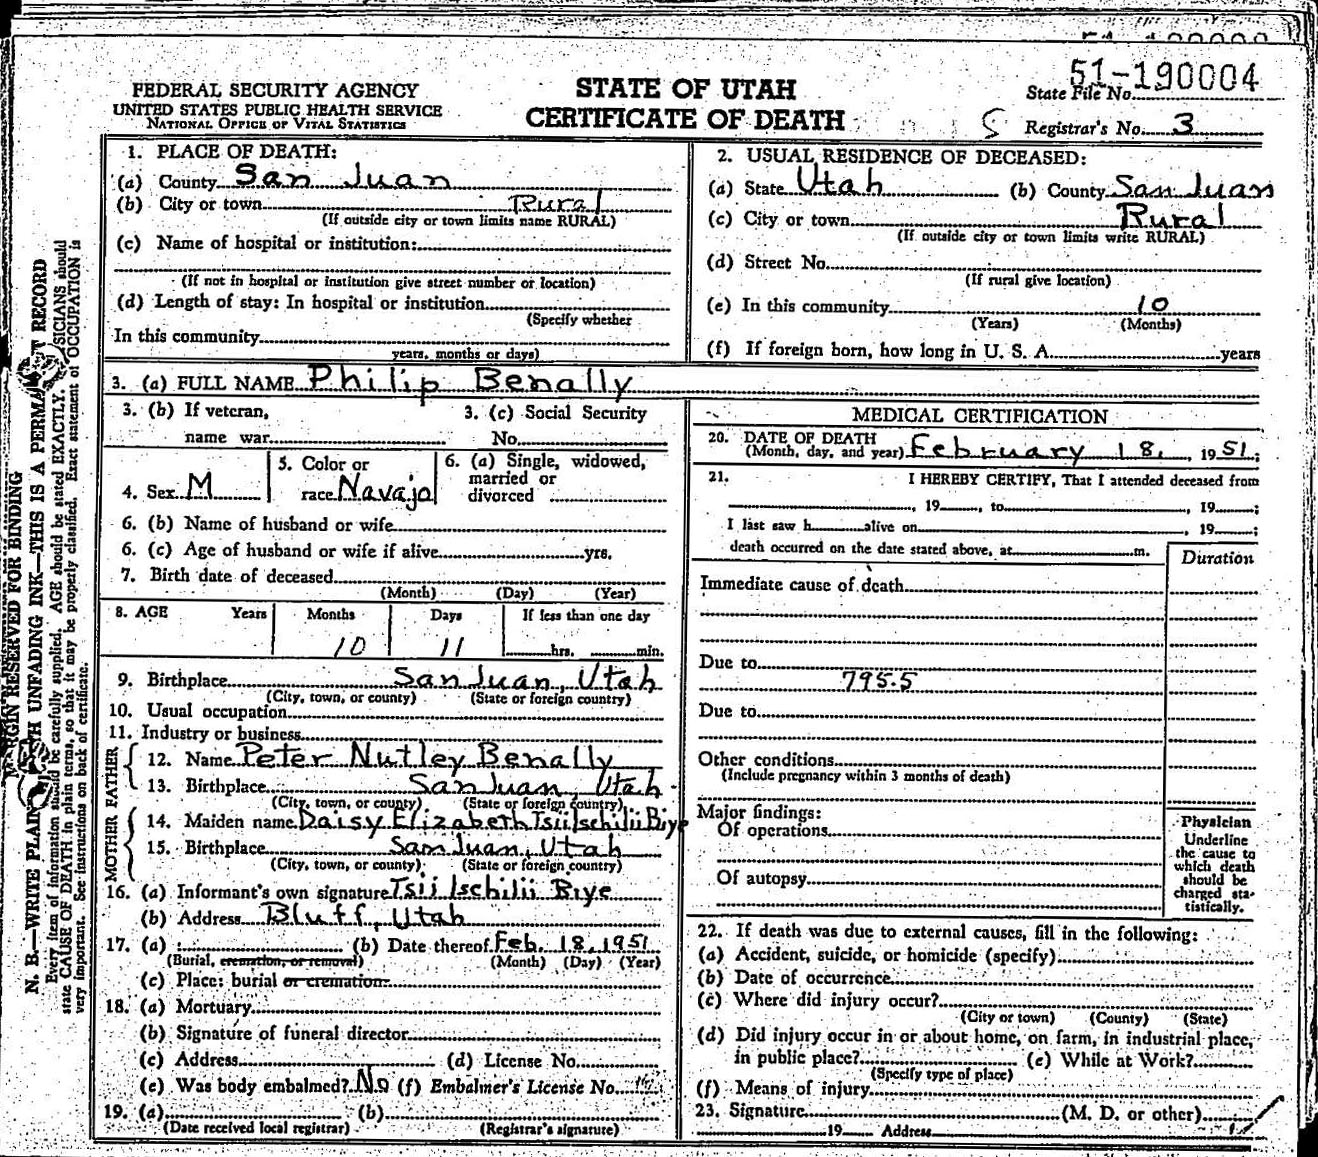 51-190004
State File No.
FEDERAL SECURITY AGENCY
UNITED STATES PUBLIC HEALTH SERVICE
NATIONAL OFFICE OF VITAL STATISTICS
STATE OF UTAH
CERTIFICATE OF DEATH
Registrar's No. 3
MARGIN RESERVED FOR BINDING
N. B.—WRITE PLAINLY WITH UNFADING INK—THIS IS A PERMANENT RECORD
Every item of information should be carefully supplied. AGE should be stated EXACTLY. PHYSICIANS should
state CAUSE OF DEATH in plain terms, so that it may be properly classified. Exact statement of OCCUPATION is
very important. See instructions on back of certificate.
1. PLACE OF DEATH:
(a) County San Juan
(b) City or town Rural
(If outside city or town limits name RURAL)
(c) Name of hospital or institution:
(If not in hospital or institution give street number or location)
(d) Length of stay: In hospital or institution
(Specify whether
In this community
years, months or days)
2. USUAL RESIDENCE OF DECEASED:
(a) State Utah (b) County San Juan
(c) City or town Rural
(If outside city or town limits write RURAL)
(d) Street No.
(If rural give location)
(e) In this community 10
(Years) (Months)
(f) If foreign born, how long in U. S. A. years
3. (a) FULL NAME Philip Benally
3. (b) If veteran, 3. (c) Social Security
name war No.
4. Sex M 5. Color or race Navajo 6. (a) Single, widowed, married or divorced
6. (b) Name of husband or wife
6. (c) Age of husband or wife if alive yrs.
7. Birth date of deceased
(Month) (Day) (Year)
8. AGE Years Months Days If less than one day
10 11 hrs. min.
9. Birthplace San Juan, Utah
(City, town, or county) (State or foreign country)
10. Usual occupation
11. Industry or business
FATHER
12. Name Peter Nutley Benally
13. Birthplace San Juan, Utah
(City, town, or county) (State or foreign country)
MOTHER
14. Maiden name Daisy Elizabeth Tsiilschilii Biye
15. Birthplace San Juan, Utah
(City, town, or county) (State or foreign country)
16. (a) Informant's own signature Tsiilschilii Biye
(b) Address Bluff, Utah
17. (a) (b) Date thereof Feb. 18, 1951
(Burial, cremation, or removal) (Month) (Day) (Year)
(c) Place: burial or cremation
18. (a) Mortuary
(b) Signature of funeral director
(c) Address (d) License No.
(e) Was body embalmed? No (f) Embalmer's License No.
19. (a) (b)
(Date received local registrar) (Registrar's signature)
MEDICAL CERTIFICATION
20. DATE OF DEATH
(Month, day, and year) February 18, 1951
21. I HEREBY CERTIFY, That I attended deceased from
, 19 , to , 19 ;
I last saw h alive on , 19 ;
death occurred on the date stated above, at m.
Duration
Immediate cause of death
Due to
795.5
Due to
Other conditions
(Include pregnancy within 3 months of death)
Major findings:
Of operations
Of autopsy
Physician
Underline
the cause to
which death
should be
charged sta-
tistically.
22. If death was due to external causes, fill in the following:
(a) Accident, suicide, or homicide (specify)
(b) Date of occurrence
(c) Where did injury occur?
(City or town) (County) (State)
(d) Did injury occur in or about home, on farm, in industrial place,
in public place? (e) While at Work?
(Specify type of place)
(f) Means of injury
23. Signature (M. D. or other)
19 Address